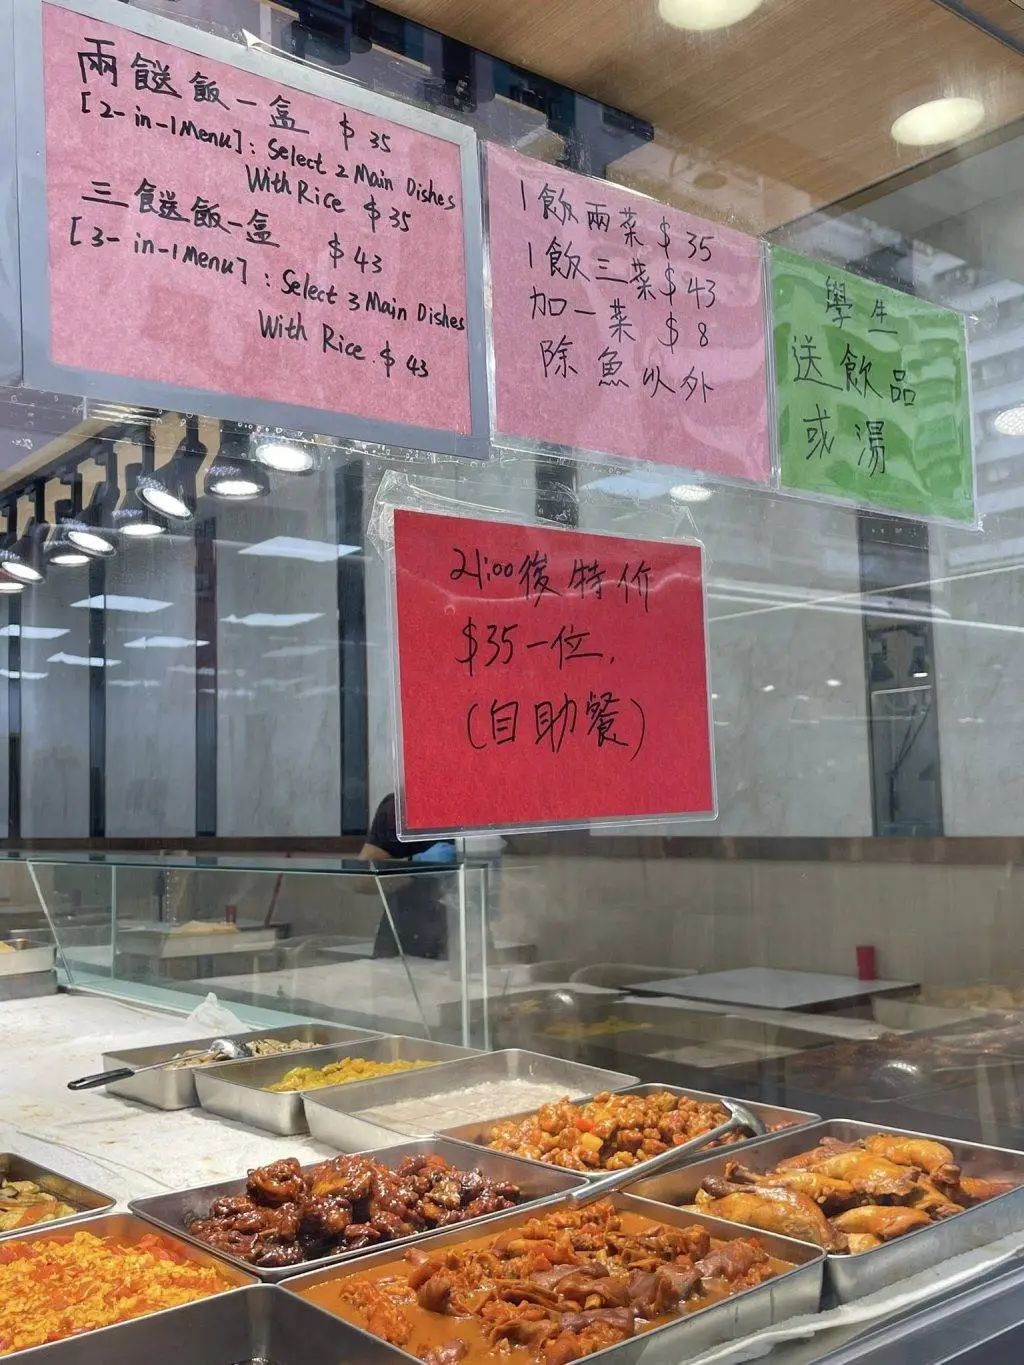 兩餸飯一盒 $35
[2-in-1Menu]: Select 2 Main Dishes
With Rice $35
三餸飯一盒 $43
[3-in-1Menu]: Select 3 Main Dishes
With Rice $43
1飯兩菜$35
1飯三菜$43
加一菜$8
除魚以外
學生
送飲品
或湯
21:00後特价
$35一位.
(自助餐)